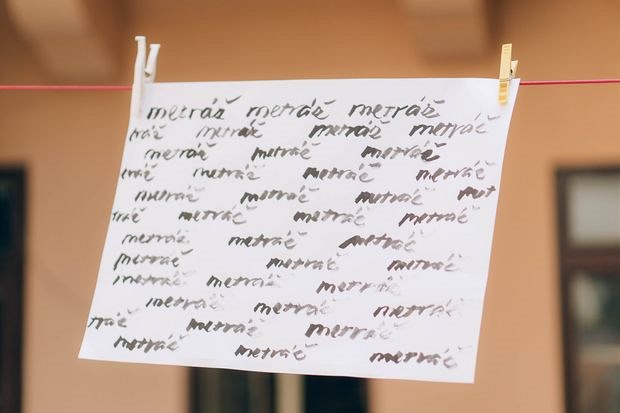 metráž metráž metráž
tráž metráž metráž metráč
metráč metráč metráč
tráč metráč metráč metráč
metráč metráč metráč met
tráč metráč metráč metráč
metráč metráč metráč
metráč metráč metráč
metráč metráč metráč
metráč metráč metráč
tráč metráč metráč
metráč metráč metráč